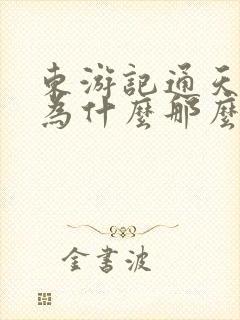 東游記通天
為什麼那麼
金書波